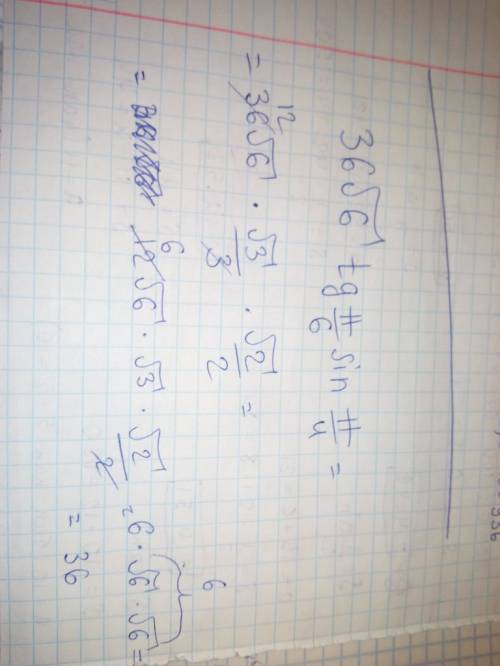 36√6 tg π/6 sin π/4 =
= 36√6 · √3/3 · √2/2 =
12
= 12√6 · √3 · √2/2 = 6 · √6 · √6 =
6
6
= 36